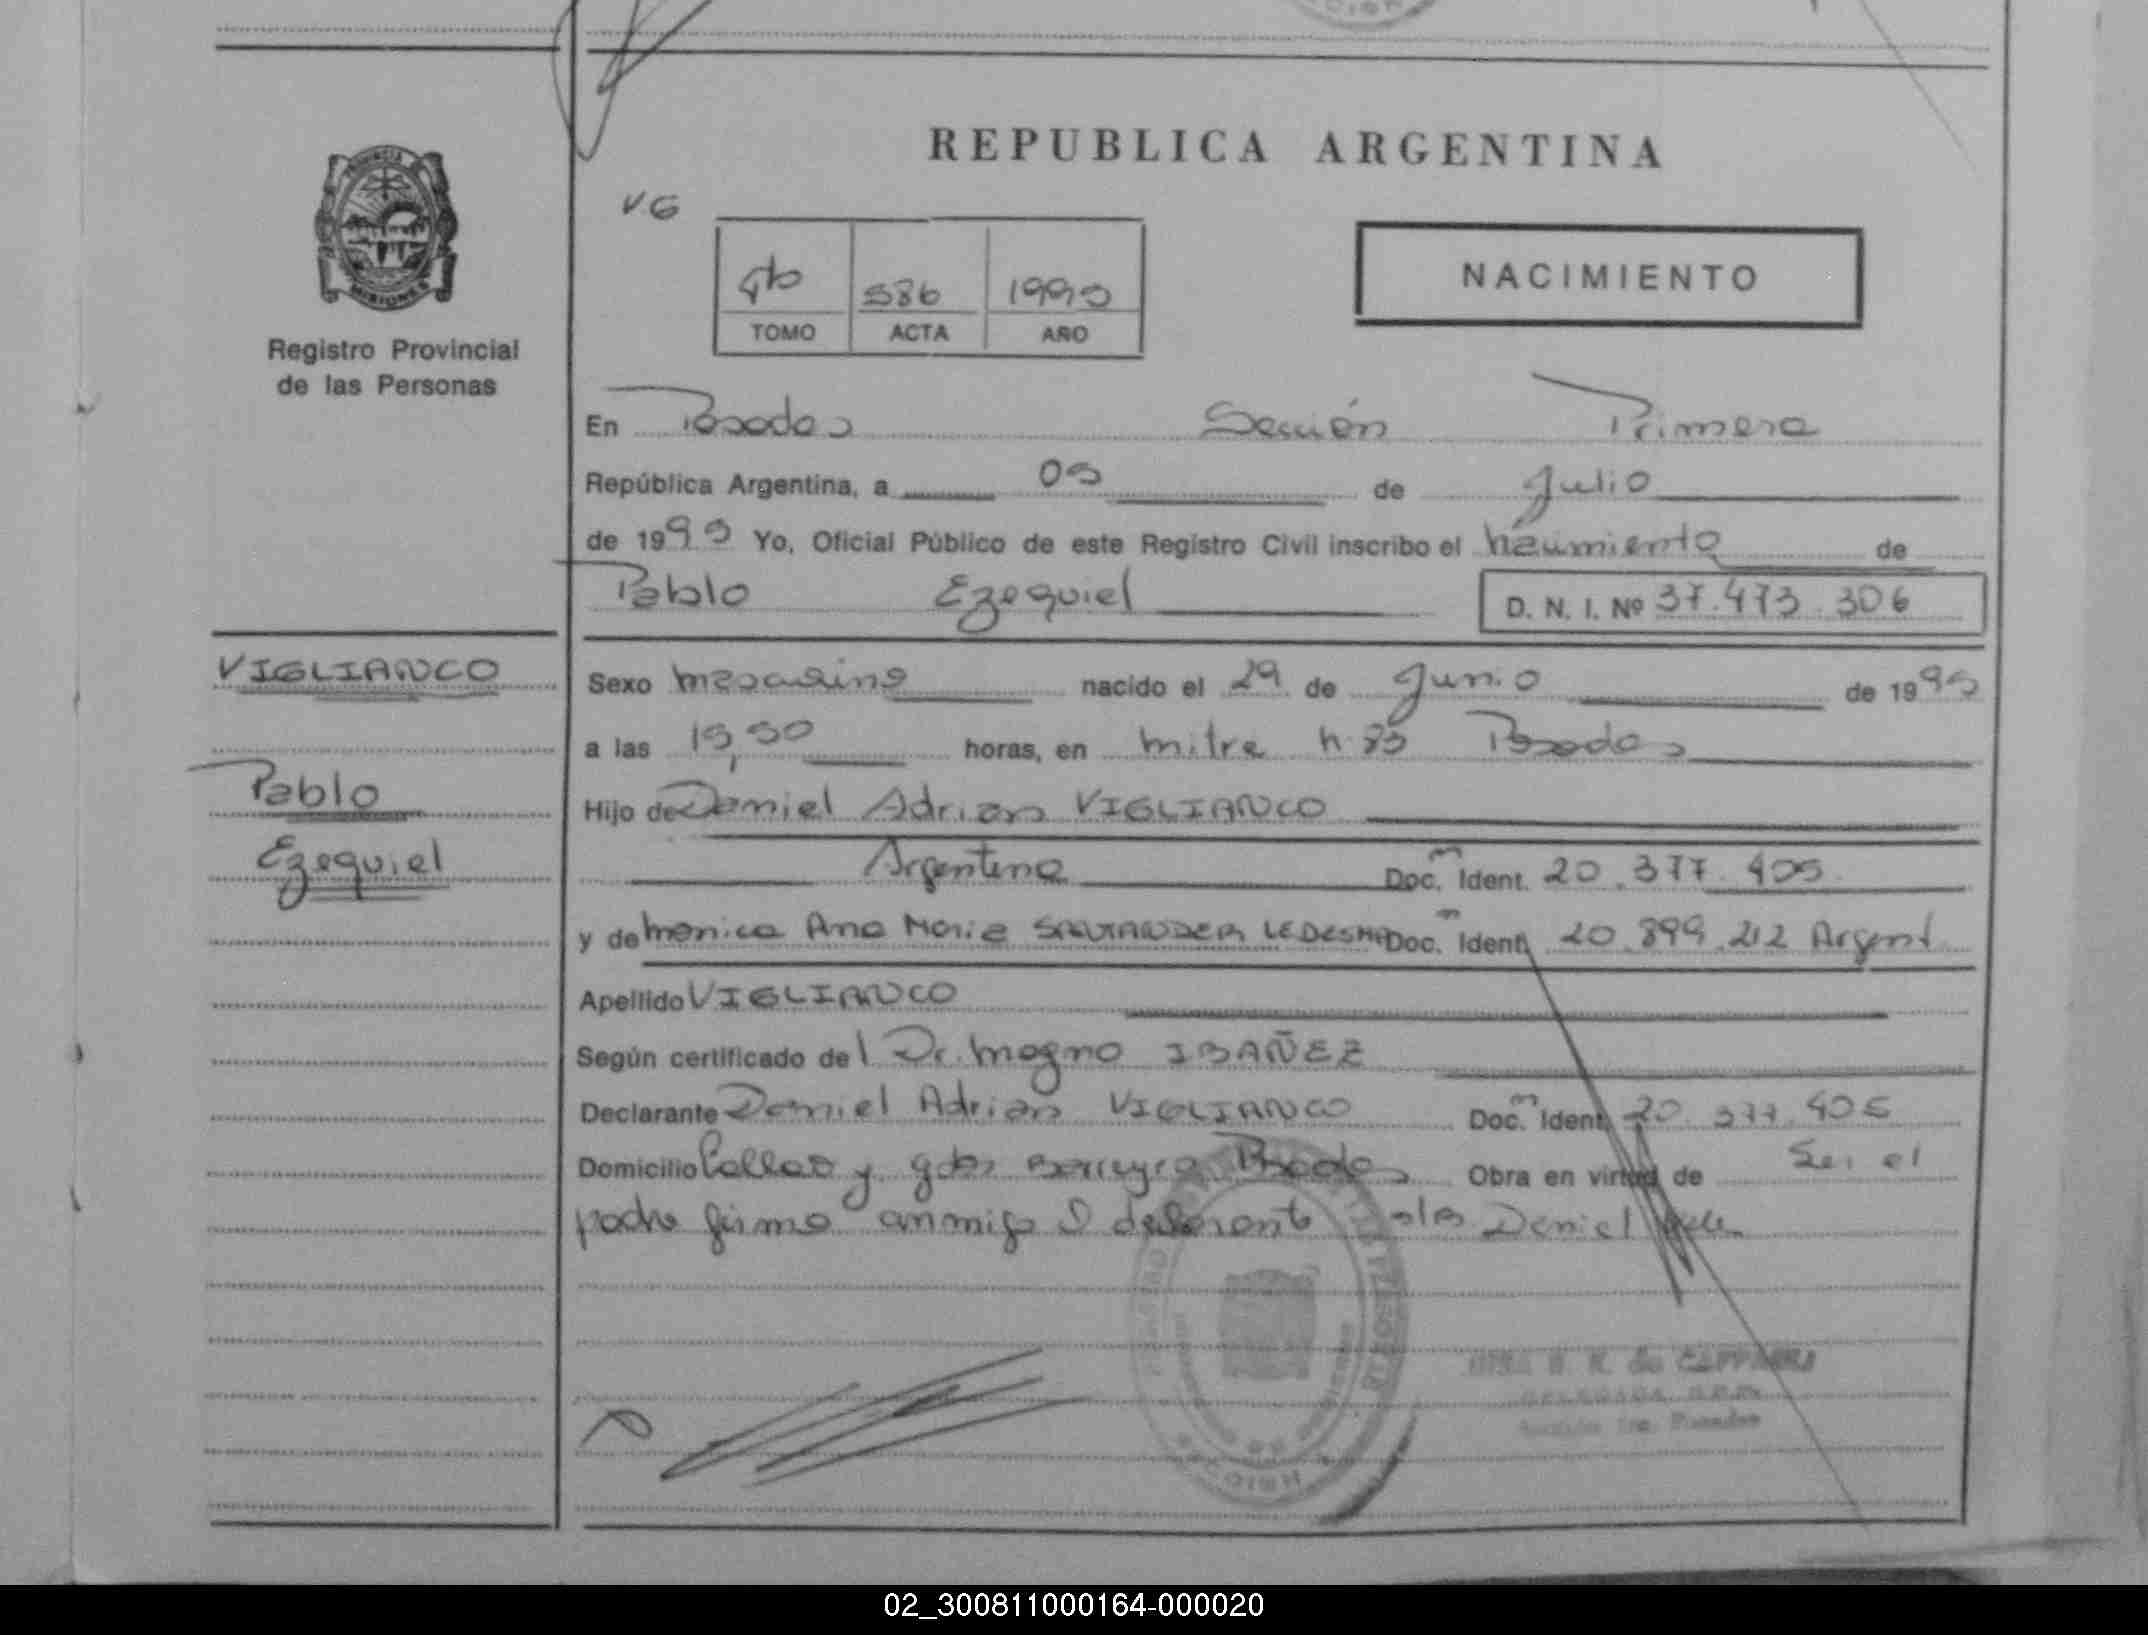 REPUBLICA ARGENTINA
VG
PROVINCIA
MISIONES
Registro Provincial
de las Personas
4to 586 1993
TOMO ACTA AÑO
NACIMIENTO
En Posadas Sección Primera
República Argentina, a 05 de Julio
de 1993 Yo, Oficial Público de este Registro Civil inscribo el nacimiento de
Pablo Ezequiel D. N. I. Nº 37.473.306
VIGLIANCO
Pablo
Ezequiel
Sexo masculino nacido el 29 de Junio de 1993
a las horas, en mitre n Posadas
Hijo de Daniel Adrian VIGLIANCO
Argentino Doc. Ident. 20.377.405
y de monica Ana Maria SANTANDER LEDESMA Doc. Ident. 20.899.212 Argent
Apellido VIGLIANCO
Según certificado del Dr. magno IBAÑEZ
Declarante Daniel Adrian VIGLIANCO Doc. Ident. 20.377.405
Domicilio Callao y gdor Barreyro Posadas Obra en virtud de Ser el
padre firma conmigo el declarante Daniel
de CAFFARRI
DELEGADA R.P.P.
Sección 1ra. Posadas
02_300811000164-000020